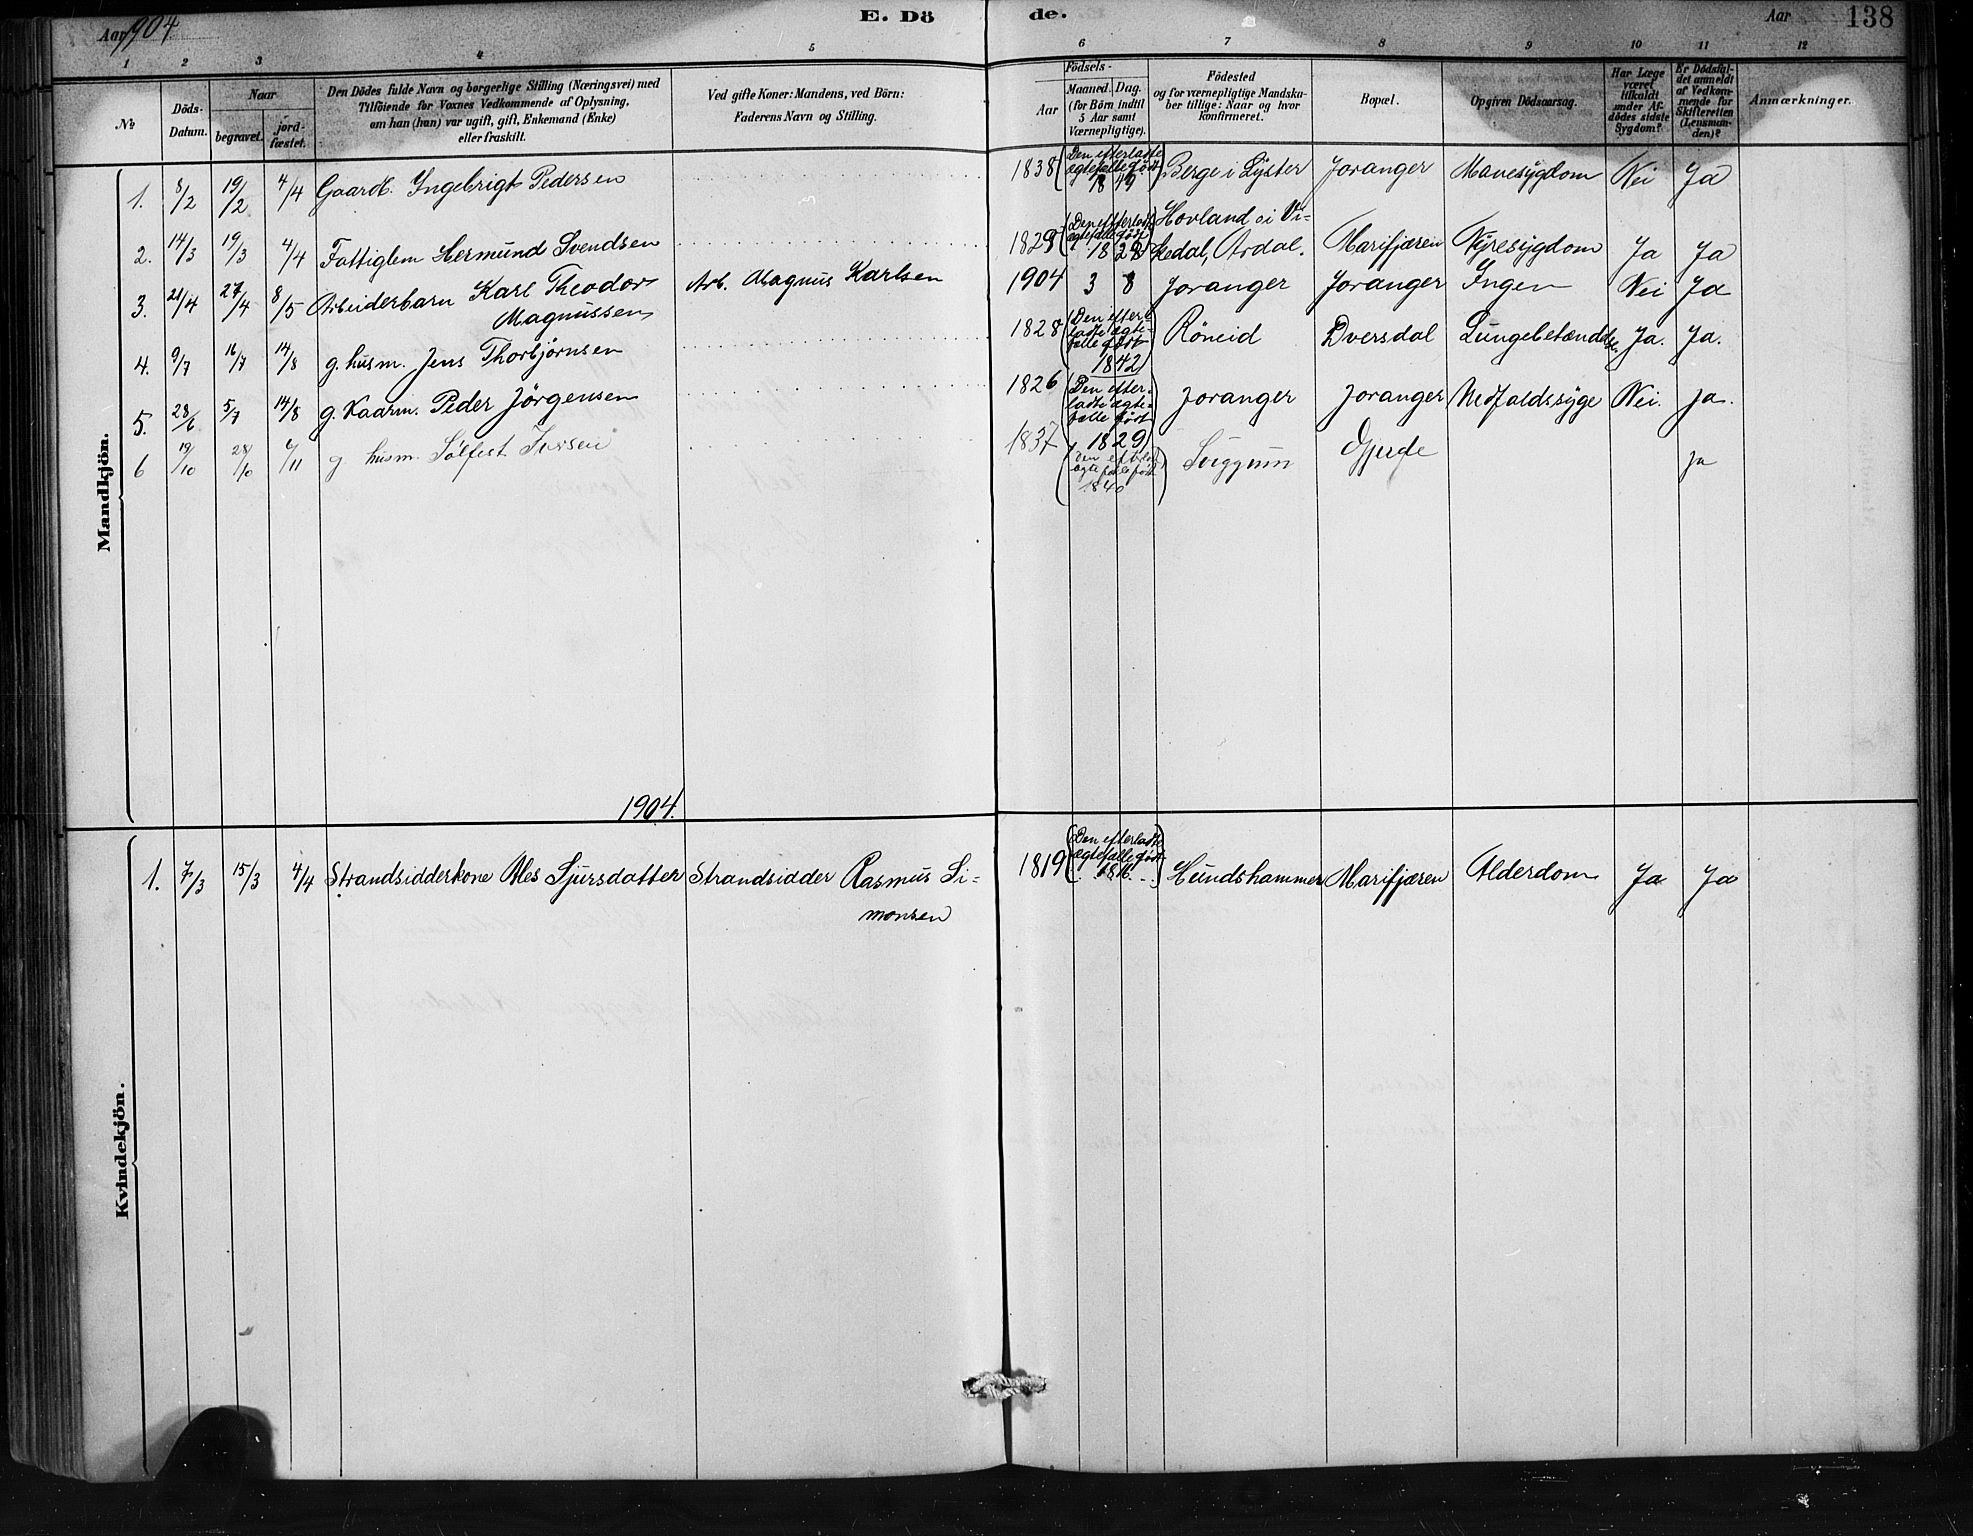 Aar 1904
E. Dö de.
Aar
138
1 2 3 4 5 6 7 8 9 10 11 12
No
Döds-
Datum.
Naar
begravet.
jord-
fæstet.
Den Dödes fulde Navn og borgerlige Stilling (Næringsvei) med
Tilföiende for Voxnes Vedkommende af Oplysning,
om han (hun) var ugift, gift, Enkemand (Enke)
eller fraskilt.
Ved gifte Koner: Mandens, ved Börn:
Faderens Navn og Stilling.
Födsels-
Aar
Maaned. Dag.
(for Börn indtil
5 Aar samt
Værnepligtige).
Födested
og for værnepligtige Mandska-
ber tillige: Naar og hvor
konfirmeret.
Bopæl.
Opgiven Dödsaarsag.
Har Læge
været
tilkaldt
under Af-
dödes sidste
Sygdom?
Er Dödsfal-
det anmeldt
af Vedkom-
mende for
Skifteretten
(Lensman-
den)?
Anmærkninger.
Mandkjön.
1. 8/2 19/2 4/4 Gaardb. Ingebrigt Pedersen 1838 (Den efterladte
ægtefælle født
1849) Berge i Lyster Joranger Mavesygdom Nei Ja
2. 14/3 19/3 4/4 Fattiglem Hermund Svendsen 1829 (Den efterladte
ægtefælle født
1828) Hovland i Vi-
kedal, Ardal. Marifjæren Nyresygdom Ja Ja
3. 21/4 27/4 8/5 Arbeiderbarn Karl Theodor
Magnussen Arb. Magnus Karlsen 1904 3 8 Joranger Joranger Ingen Nei Ja
4. 9/7 16/7 14/8 g. husm. Jens Thorbjørnsen 1828 (Den efter-
ladte ægte-
fælle født
1842) Röneid Dversdal Lungebetændelse Ja. Ja.
5. 28/6 5/7 14/8 g. Kaarm. Peder Jörgensen 1826 (Den efter-
ladte ægte-
fælle født
1829) Joranger Joranger Nedfaldssyge Nei. Ja.
6 19/10 28/10 6/11 g husm. Sølfest Iversen 1837 (Den efterlad
ægtefælle født
1840) Sviggum Gjerde ja
1904.
Kvindekjön.
1. 7/3 15/3 4/4 Strandsidderkone Ales Sjursdatter Strandsidder Rasmus Si-
monsen 1819 (Den efterladte
ægtefælle født
1816.) Hundshammer Marifjæren Alderdom Ja Ja